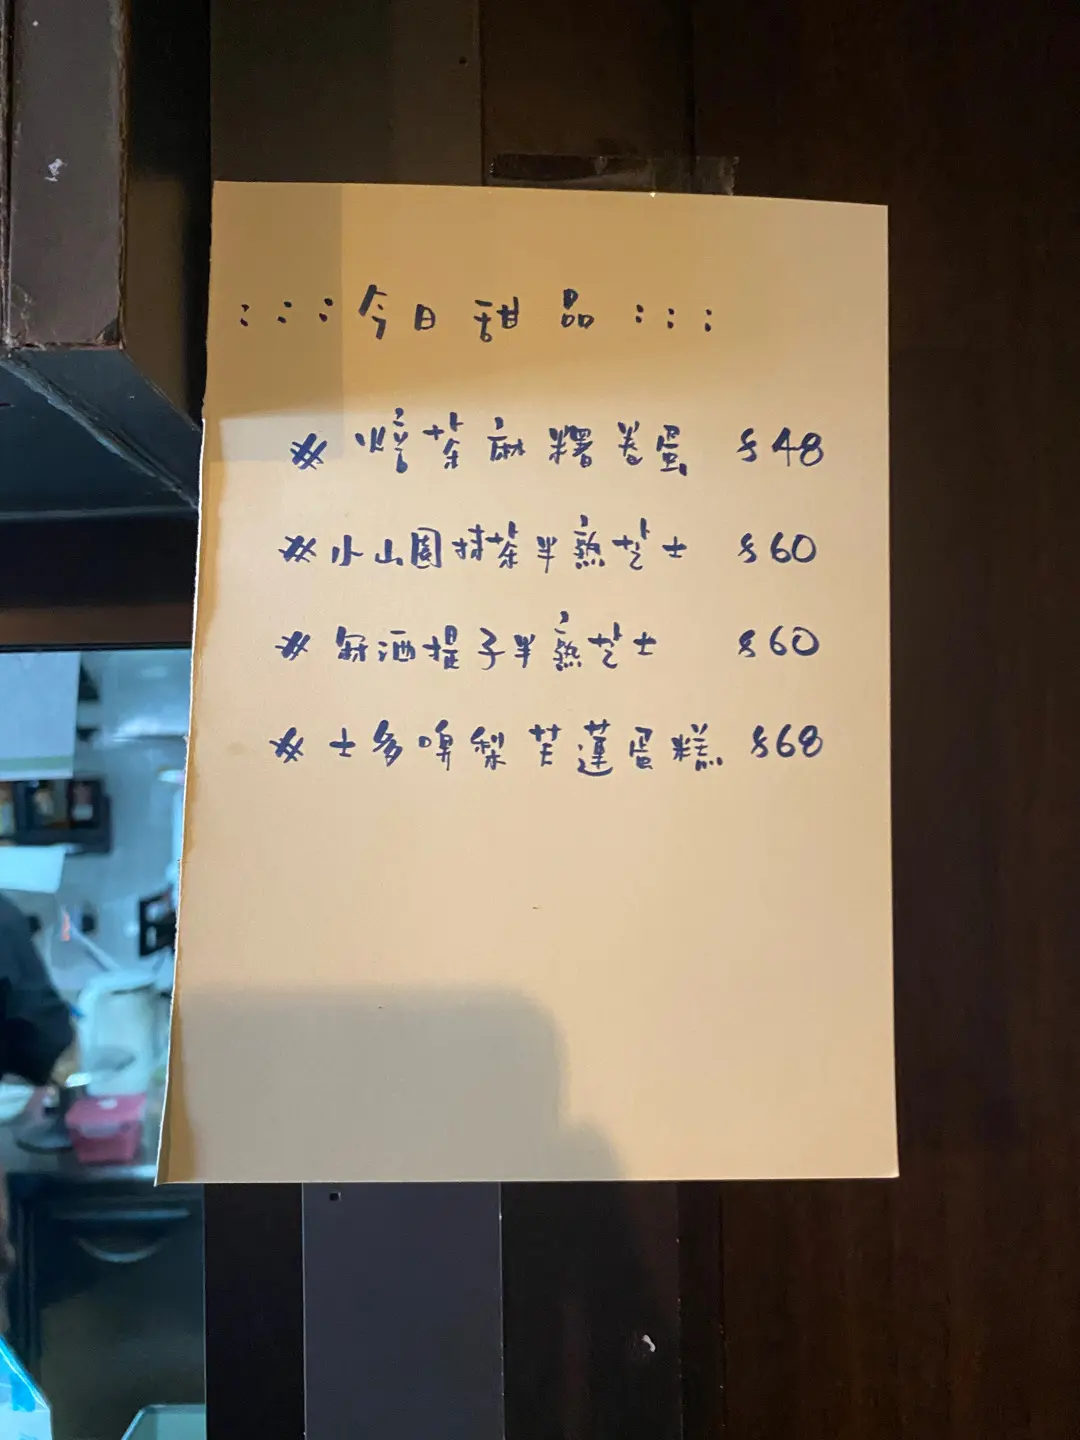 :::今日甜品:::
# 焙茶麻糬卷蛋 $48
# 小山園抹茶半熟芝士 $60
# 冧酒提子半熟芝士 $60
# 士多啤梨芙蓮蛋糕 $68